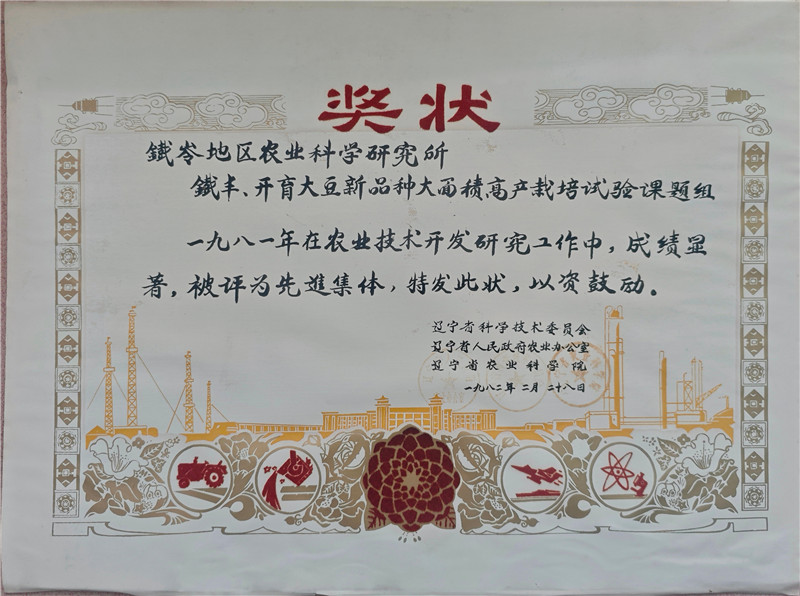 奖状
鐵岺地区农业科学研究所
鐵丰、开育大豆新品种大面積高产栽培试验课题组
一九八一年在农业技术开发研究工作中，成绩显
著，被评为先進集体，特发此状，以资鼓励。
辽宁省科学技术委员会
辽宁省人民政府农业办公室
辽宁省农业科学院
一九八二年二月二十八日